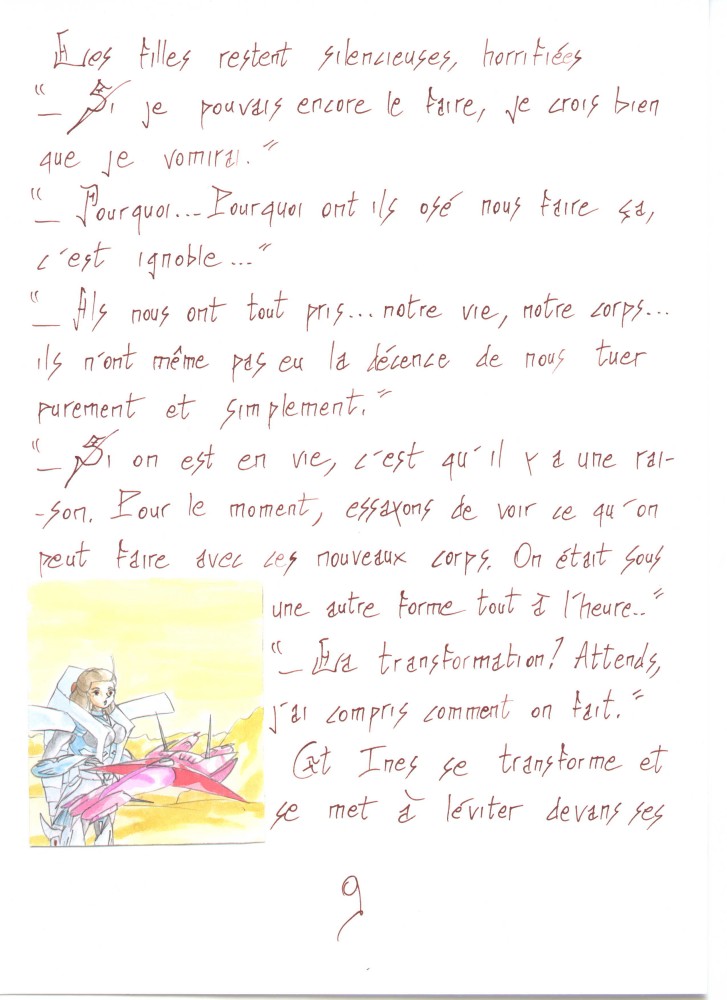 Les filles restent silencieuses, horrifiées
"_ Si je pouvais encore le faire, je crois bien
que je vomirai."
"_ Pourquoi... Pourquoi ont ils osé nous faire ça,
c'est ignoble..."
"_ Ils nous ont tout pris... notre vie, notre corps...
ils n'ont même pas eu la décence de nous tuer
purement et simplement."
"_ Si on est en vie, c'est qu'il y a une rai-
-son. Pour le moment, essayons de voir ce qu'on
peut faire avec ces nouveaux corps. On était sous
une autre forme tout à l'heure.."
"_ La transformation? Attends,
j'ai compris comment on fait."
Et Ines se transforme et
se met à léviter devans ses
9